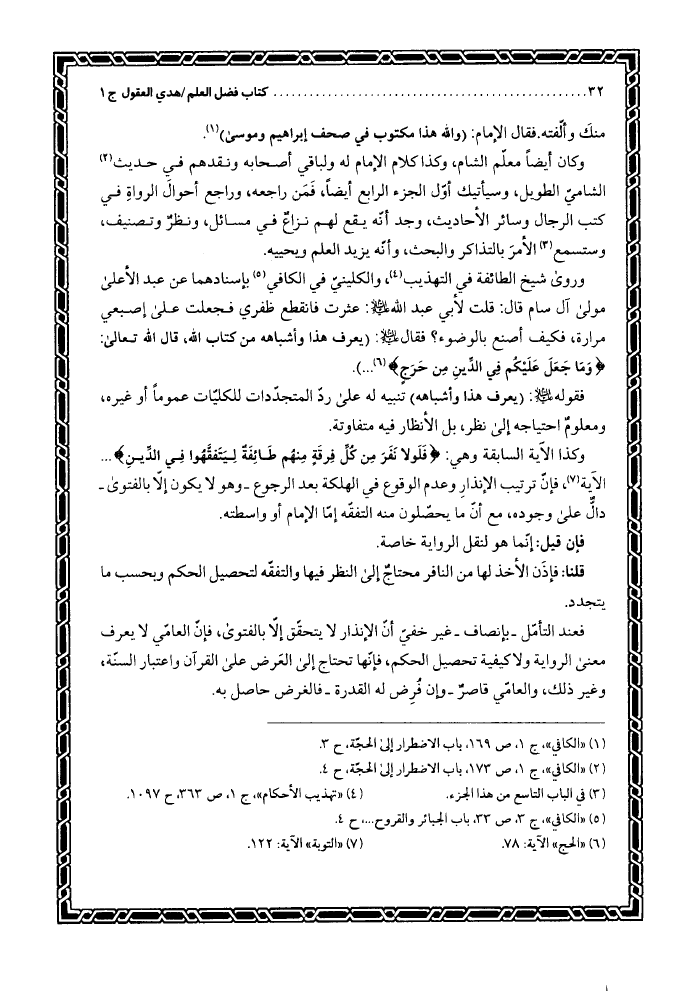 ٣٢ ................................................ كتاب فضل العلم/هدي العقول ج ١
منكَ وألّفته. فقال الإمام: (والله هذا مكتوب في صحف إبراهيم وموسىٰ)(١).
وكان أيضاً معلّم الشام، وكذا كلام الإمام له ولباقي أصحابه ونقدهم في حديث(٢)
الشاميّ الطويل، وسيأتيك أوّل الجزء الرابع أيضاً، فَمَن راجعه، وراجع أحوالَ الرواةِ في
كتب الرجال وسائر الأحاديث، وجد أنّه يقع لهم نزاعٌ في مسائل، ونظرٌ وتصنيف،
وستسمع(٣) الأمرَ بالتذاكر والبحث، وأنّه يزيد العلم ويحييه.
وروىٰ شيخ الطائفة في التهذيب(٤)، والكلينيّ في الكافي(٥) بإسنادهما عن عبد الأعلىٰ
مولىٰ آل سام قال: قلت لأبي عبد الله ﷺ: عثرت فانقطع ظفري فجعلت علىٰ إصبعي
مرارة، فكيف أصنع بالوضوء؟ فقال ﷺ: (يعرف هذا وأشباهه من كتاب الله، قال الله تعالىٰ:
﴿وَمَا جَعَلَ عَلَيْكُم فِي الدِّينِ مِن حَرَجٍ﴾(٦)...).
فقوله ﷺ: (يعرف هذا وأشباهه) تنبيه له علىٰ ردّ المتجدّدات للكليّات عموماً أو غيره،
ومعلومٌ احتياجه إلىٰ نظر، بل الأنظار فيه متفاوتة.
وكذا الآية السابقة وهي: ﴿فَلَولا نَفَرَ مِن كُلِّ فِرقَةٍ مِنهُم طَائِفَةٌ لِيَتَفَقَّهُوا فِي الدِّينِ﴾ ...
الآية(٧)، فإنّ ترتيب الإنذارِ وعدم الوقوع في الهلكة بعد الرجوع ـ وهو لا يكون إلّا بالفتوىٰ ـ
دالٌّ علىٰ وجوده، مع أنّ ما يحصّلون منه التفقّه إمّا الإمام أو واسطته.
فإن قيل: إنّما هو لنقل الرواية خاصة.
قلنا: فإذَن الأخذ لها من النافر محتاجٌ إلىٰ النظر فيها والتفقه لتحصيل الحكم وبحسب ما
يتجدد.
فعند التأمّل ـ بإنصاف ـ غير خفيّ أنّ الإنذار لا يتحقّق إلّا بالفتوىٰ، فإنّ العامّي لا يعرف
معنىٰ الرواية ولا كيفية تحصيل الحكم، فإنّها تحتاج إلىٰ العَرض علىٰ القرآن واعتبار السنّة،
وغير ذلك، والعامّي قاصرٌ ـ وإن فُرِض له القدرة ـ فالغرض حاصل به.
(١) «الكافي»، ج ١، ص ١٦٩، باب الاضطرار إلىٰ الحجّة، ح ٣.
(٢) «الكافي»، ج ١، ص ١٧٣، باب الاضطرار إلىٰ الحجّة، ح ٤.
(٣) في الباب التاسع من هذا الجزء. (٤) «تهذيب الأحكام»، ج ١، ص ٣٦٣، ح ١٠٩٧.
(٥) «الكافي»، ج ٣، ص ٣٣، باب الجبائر والقروح...، ح ٤.
(٦) «الحج» الآية: ٧٨. (٧) «التوبة» الآية: ١٢٢.